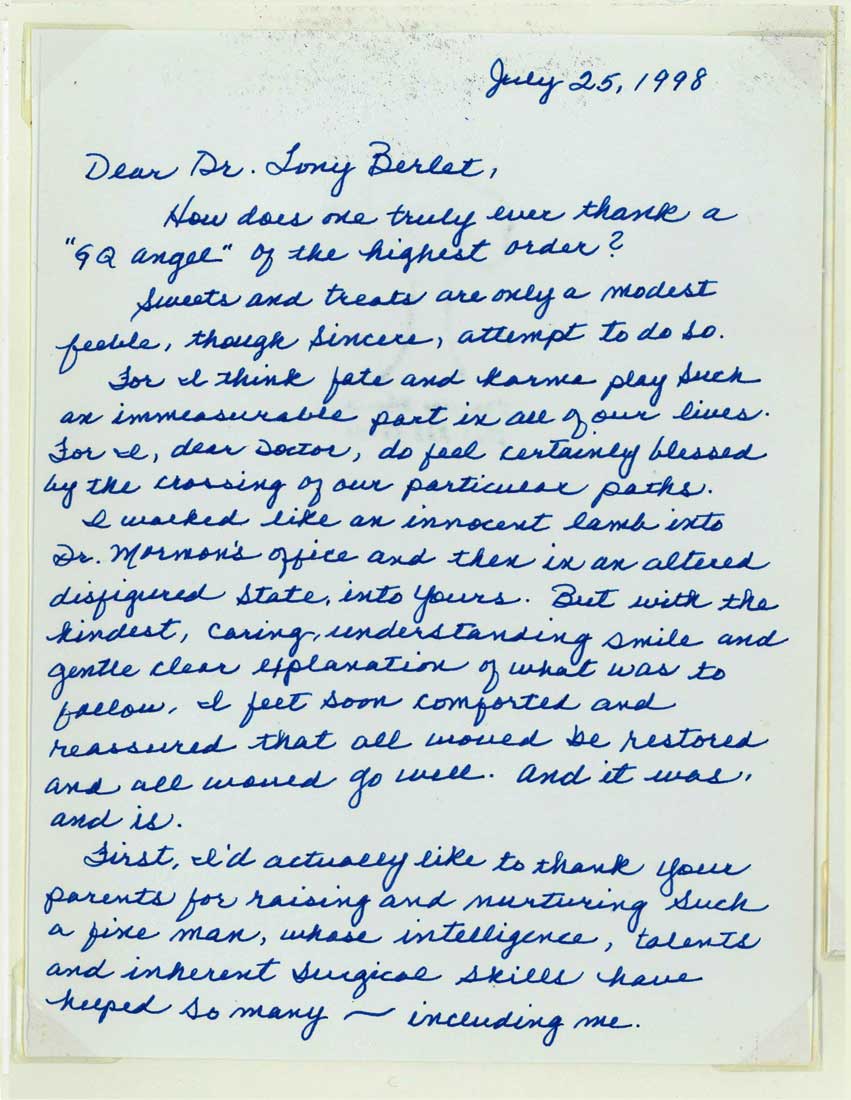 July 25, 1998
Dear Dr. Tony Berlet,
How does one truly ever thank a
"GQ angel" of the highest order?
Sweets and treats are only a modest
feeble, though sincere, attempt to do so.
For I think fate and karma play such
an immeasurable part in all of our lives.
For I, dear Doctor, do feel certainly blessed
by the crossing of our particular paths.
I walked like an innocent lamb into
Dr. Mormon's office and then in an altered
disfigured state, into yours. But with the
kindest, caring, understanding smile and
gentle clear explanation of what was to
follow, I felt soon comforted and
reassured that all would be restored
and all would go well. And it was,
and is.
First, I'd actually like to thank your
parents for raising and nurturing such
a fine man, whose intelligence, talents
and inherent surgical skills have
helped so many ~ including me.